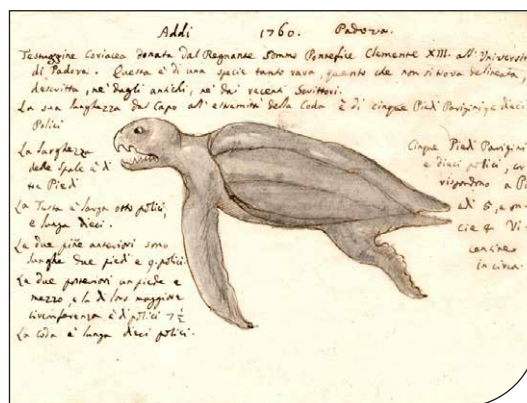 Addi 1760. Padova.
Testuggine Coriacea donata dal Regnante Sommo Pontefice Clemente XIII. all'Universit
di Padova. Questa è di una specie tanto rara, quanto che non si trova delineata
descritta, nè dagli antichi, nè dai recenti Scrittori.
La sua lunghezza dal Capo all'estremità della Coda è di cinque Piedi Parigini e dieci
Polici
La larghezza
delle spale è di
tre Piedi
La Testa è larga otto polici,
e lunga dieci.
Le due pine anteriori sono
lunghe due piedi e 9. polici.
Le due posteriori un piede e
mezzo, e la di loro maggiore
circonferenza è di polici 7 1/2
La Coda è lunga dieci polici.
Cinque Piedi Parigini
e dieci polici, cor
rispondono a P
edi 5, e on
cie 4 Vi-
centine
in circa.